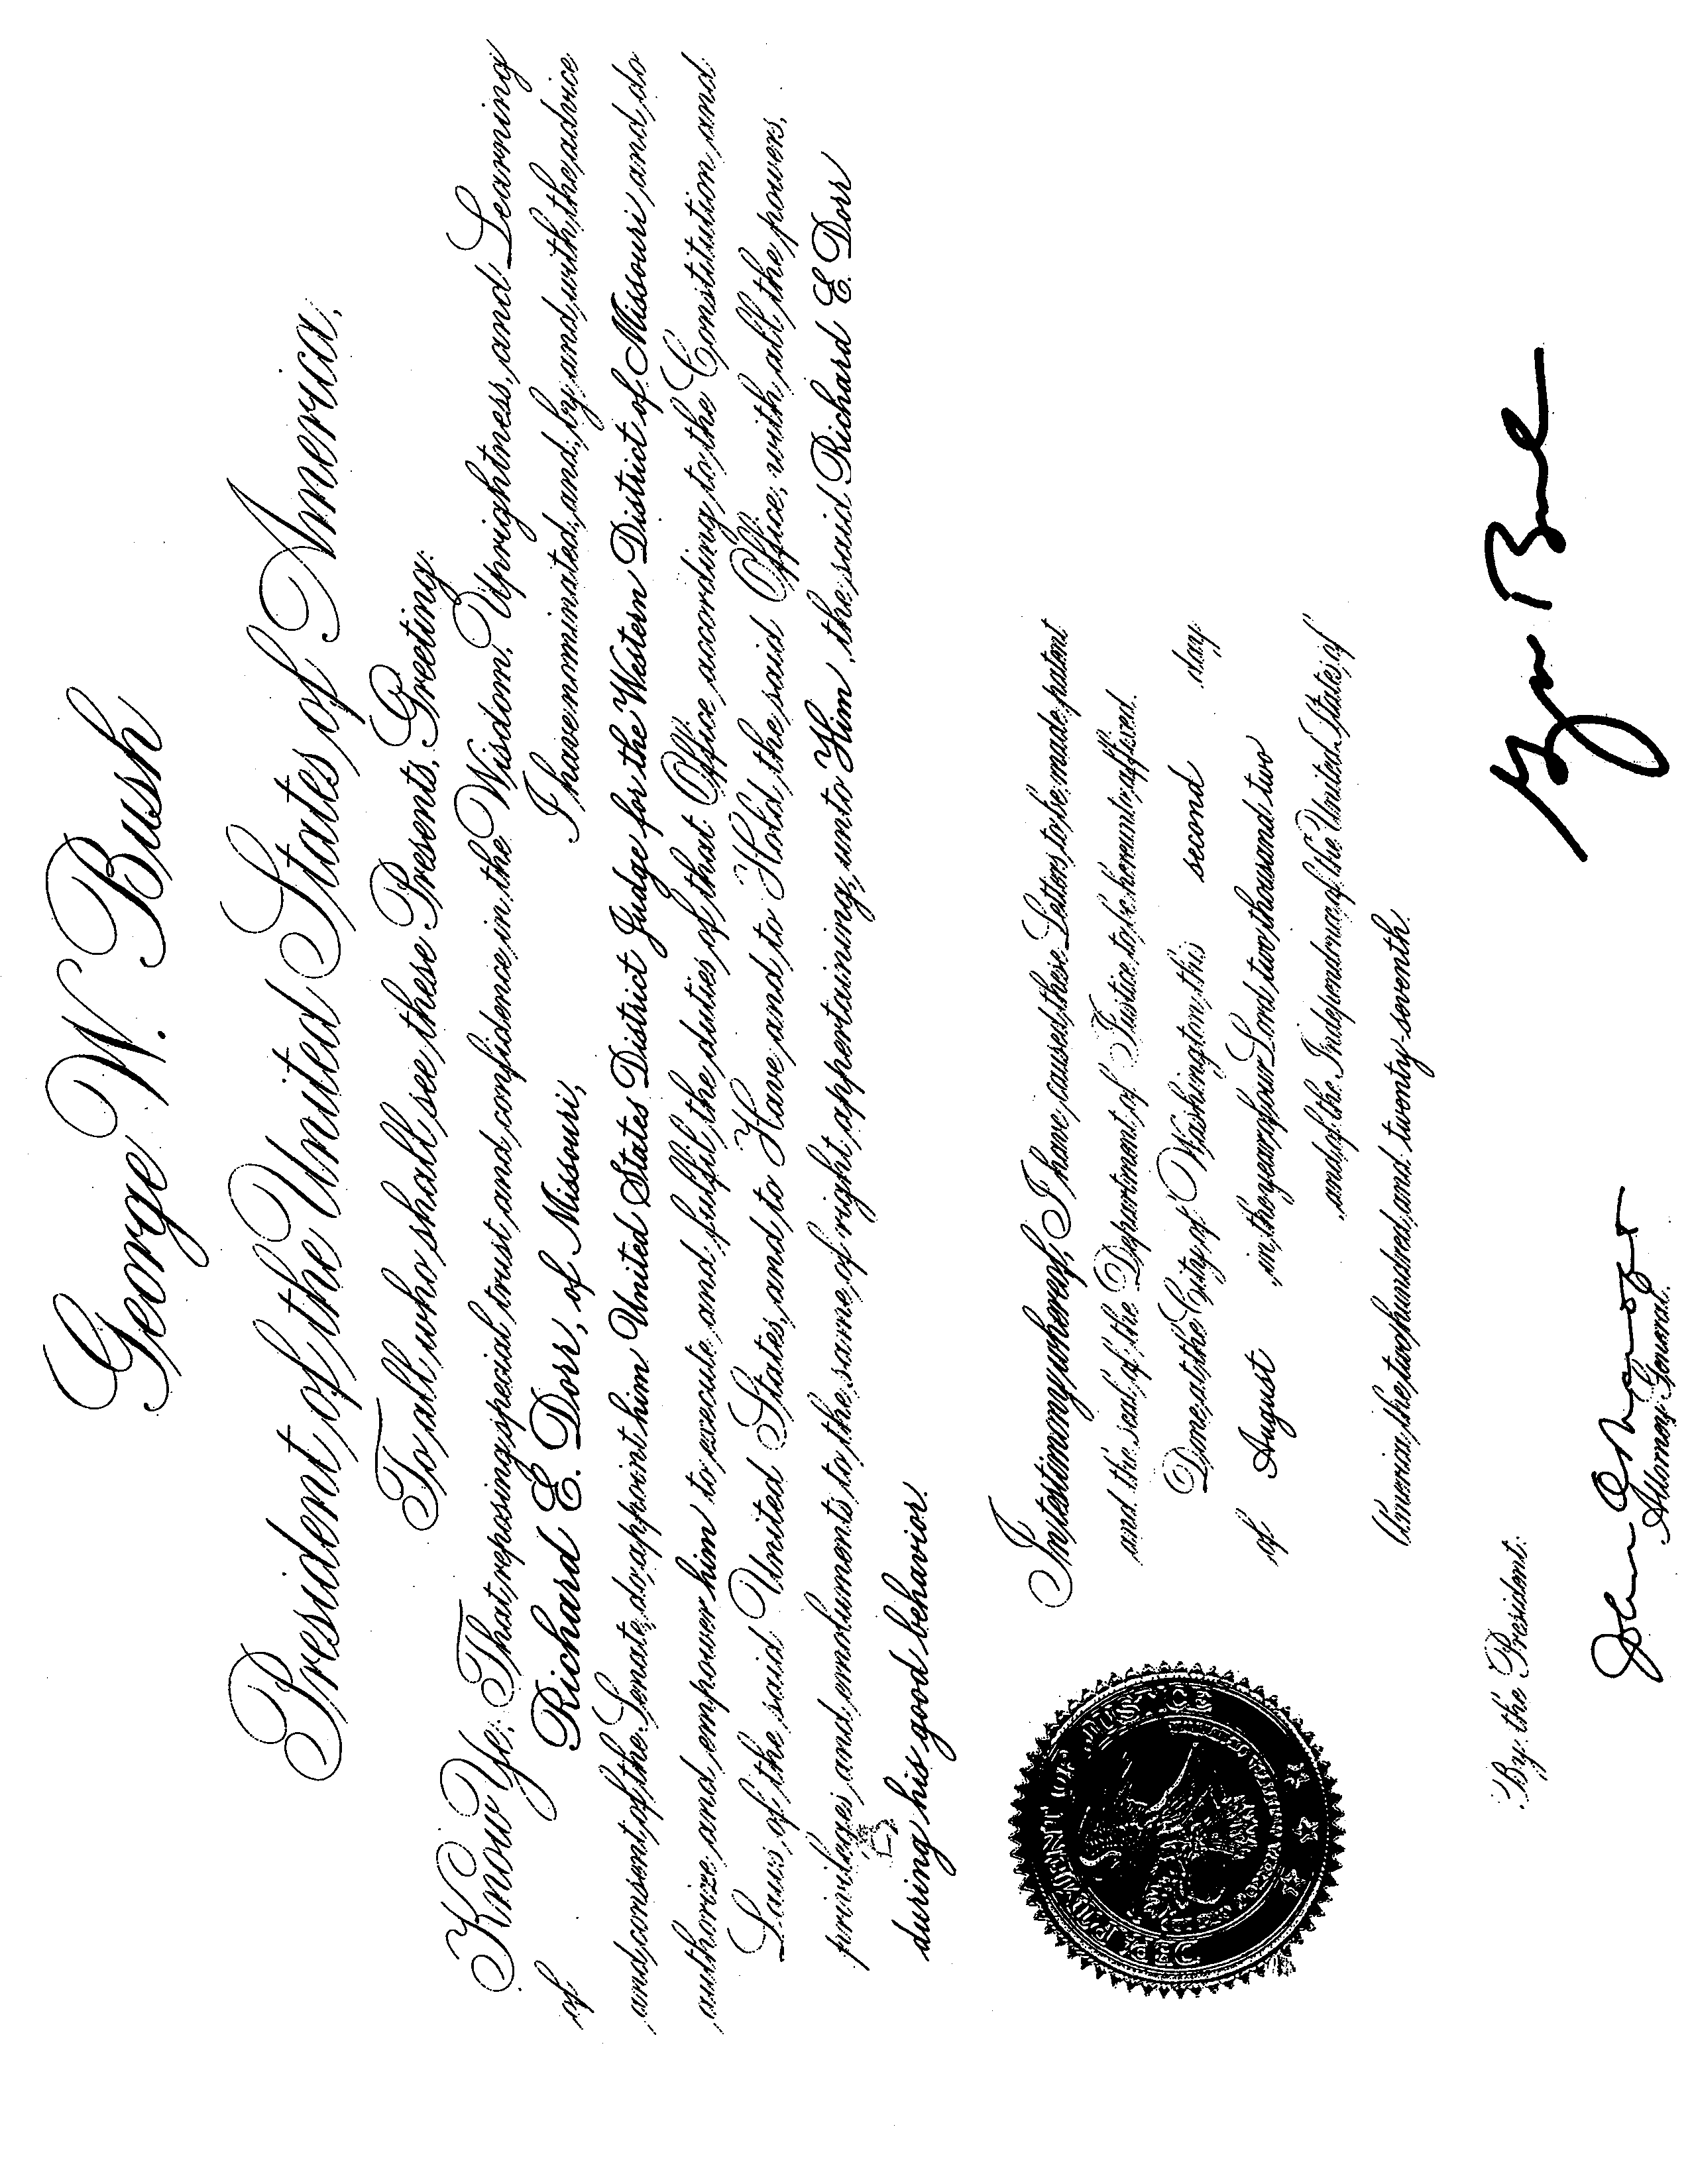 George W. Bush
President of the United States of America,
To all who shall see these Presents, Greeting:
Know Ye; That reposing special trust and confidence in the Wisdom, Uprightness, and Learning
of Richard E. Dorr, of Missouri, I have nominated, and, by and with the advice
and consent of the Senate, do appoint him United States District Judge for the Western District of Missouri and do
authorize and empower him to execute and fulfil the duties of that Office according to the Constitution and
Laws of the said United States, and to Have and to Hold the said Office, with all the powers,
privileges and emoluments to the same of right appertaining, unto Him, the said Richard E. Dorr
during his good behavior.
In testimony whereof, I have caused these Letters to be made patent
and the seal of the Department of Justice to be hereunto affixed.
Done at the City of Washington, this second day
of August in the year of our Lord two thousand two
and of the Independence of the United States of
America the two hundred and twenty-seventh.
DEPARTMENT OF JUSTICE
By the President:
George Bush
John Ashcroft
Attorney General.